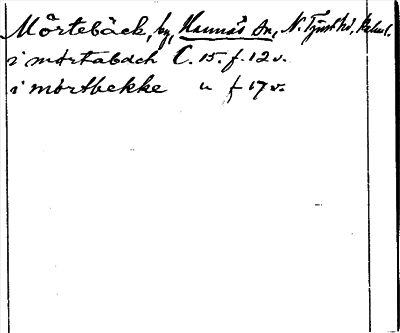 Mörtebäck, by, Hannäs sn, N. Tjust hd, Kalm l.
i mörtabach C. 15. f. 12 v.
i mörtbekke " f 17 v.